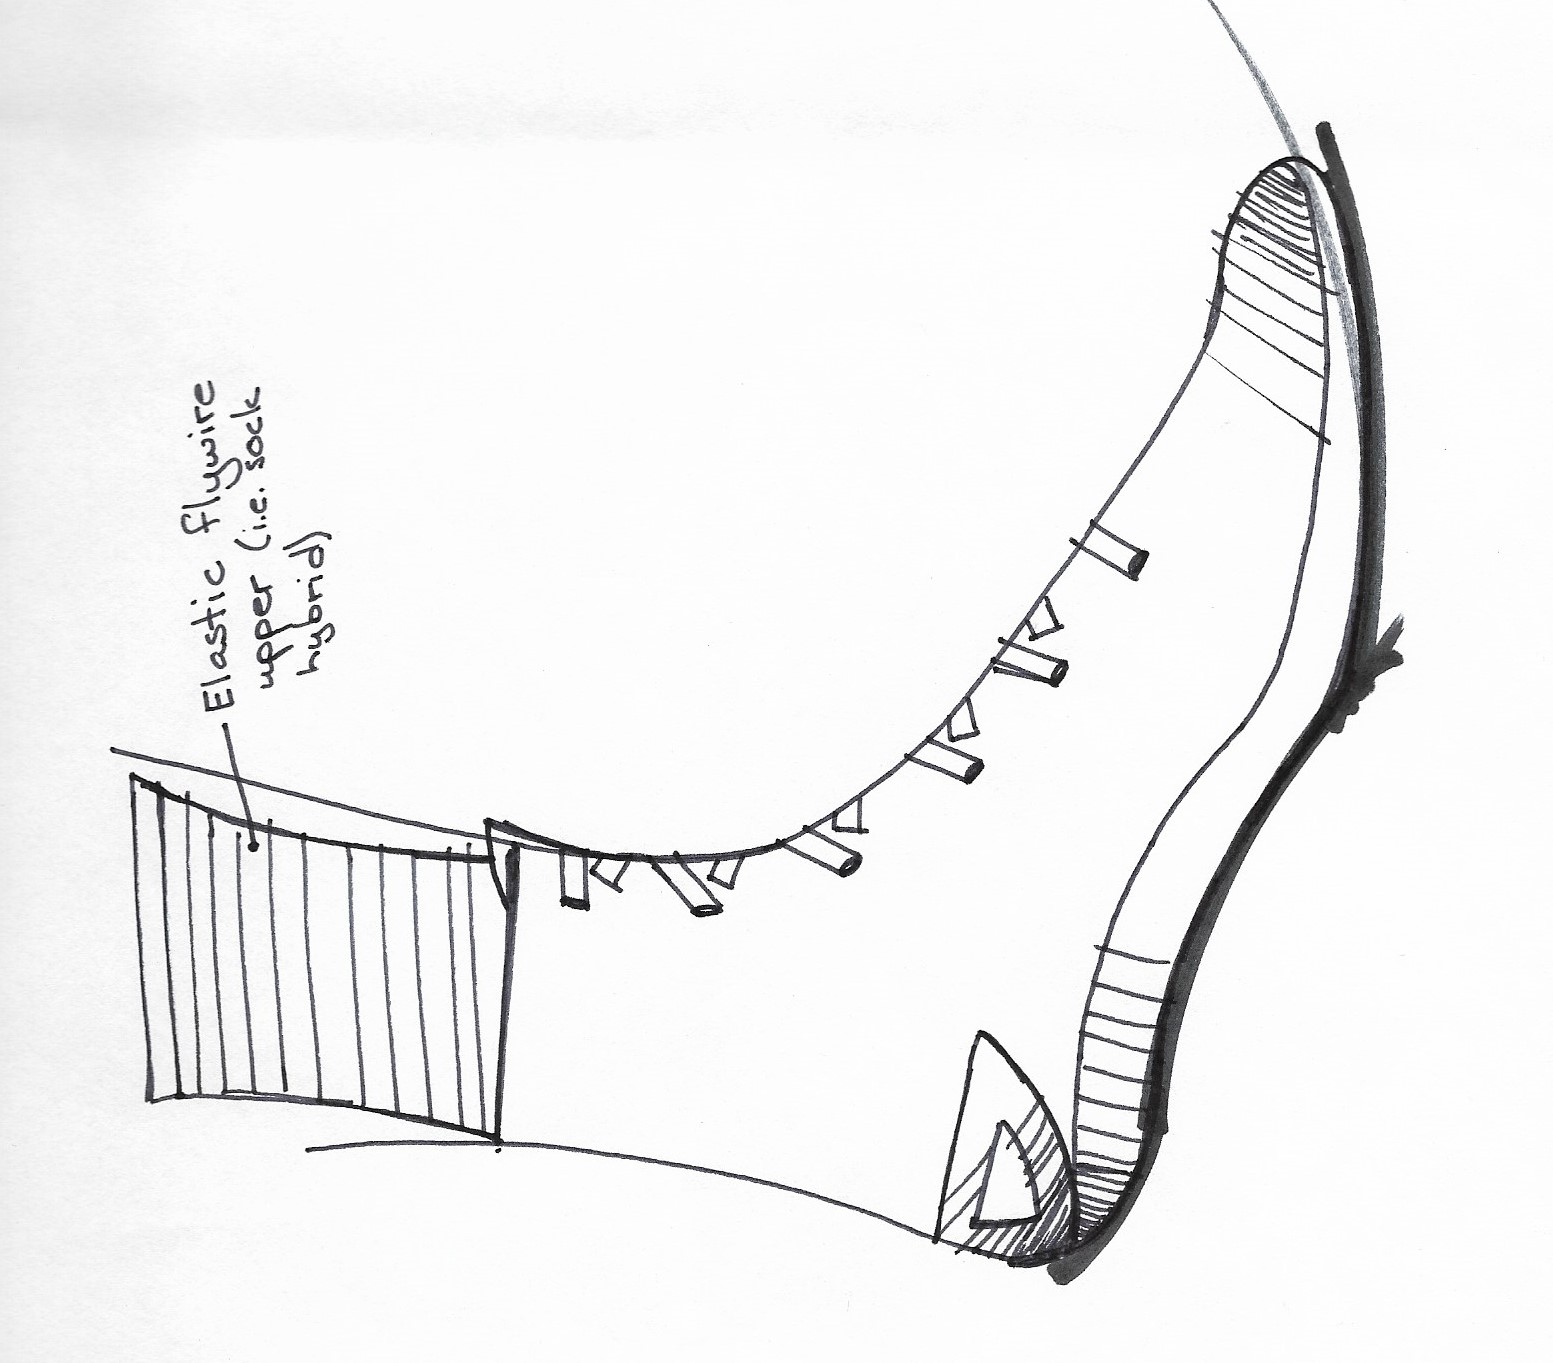 Elastic flywire
upper (i.e. sock
hybrid)